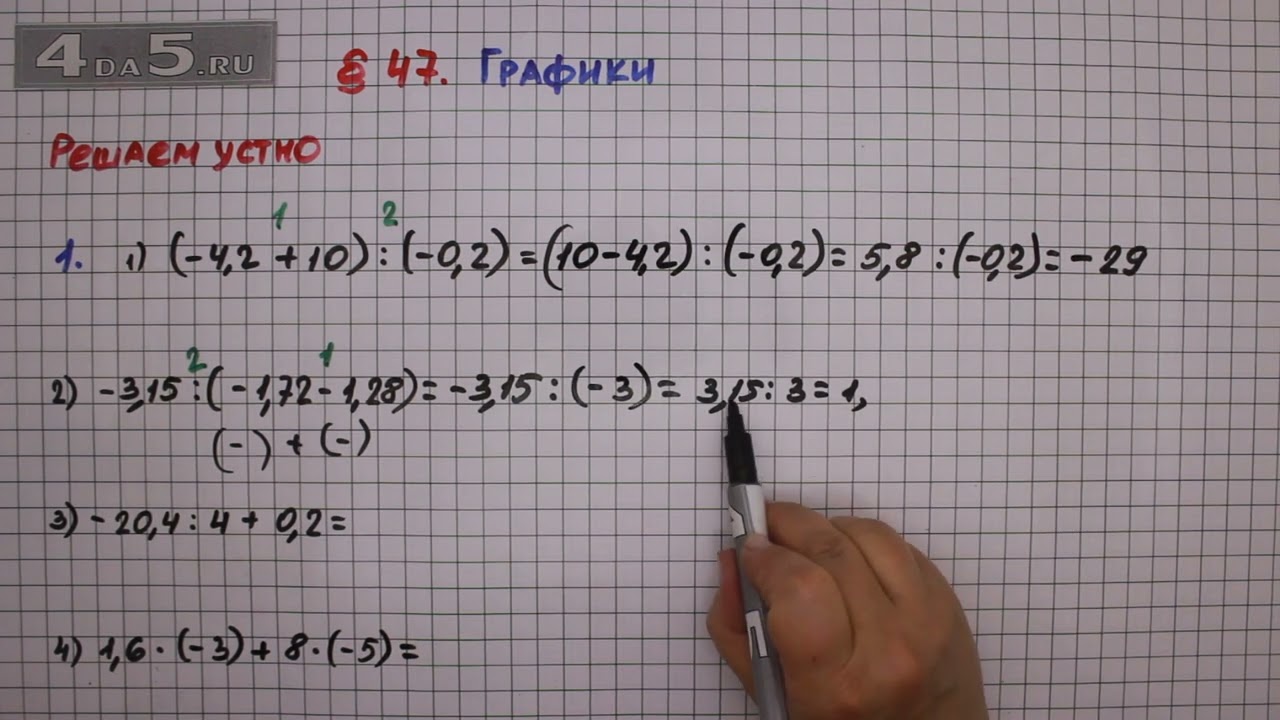 4DA5.RU
§ 47. Графики
Решаем устно
1 2
1. 1) (-4,2 + 10) : (-0,2) = (10-4,2) : (-0,2) = 5,8 : (-0,2) = -29
2 1
2) -3,15 : (-1,72 - 1,28) = -3,15 : (-3) = 3,15 : 3 = 1,
(-) + (-)
3) -20,4 : 4 + 0,2 =
4) 1,6 · (-3) + 8 · (-5) =